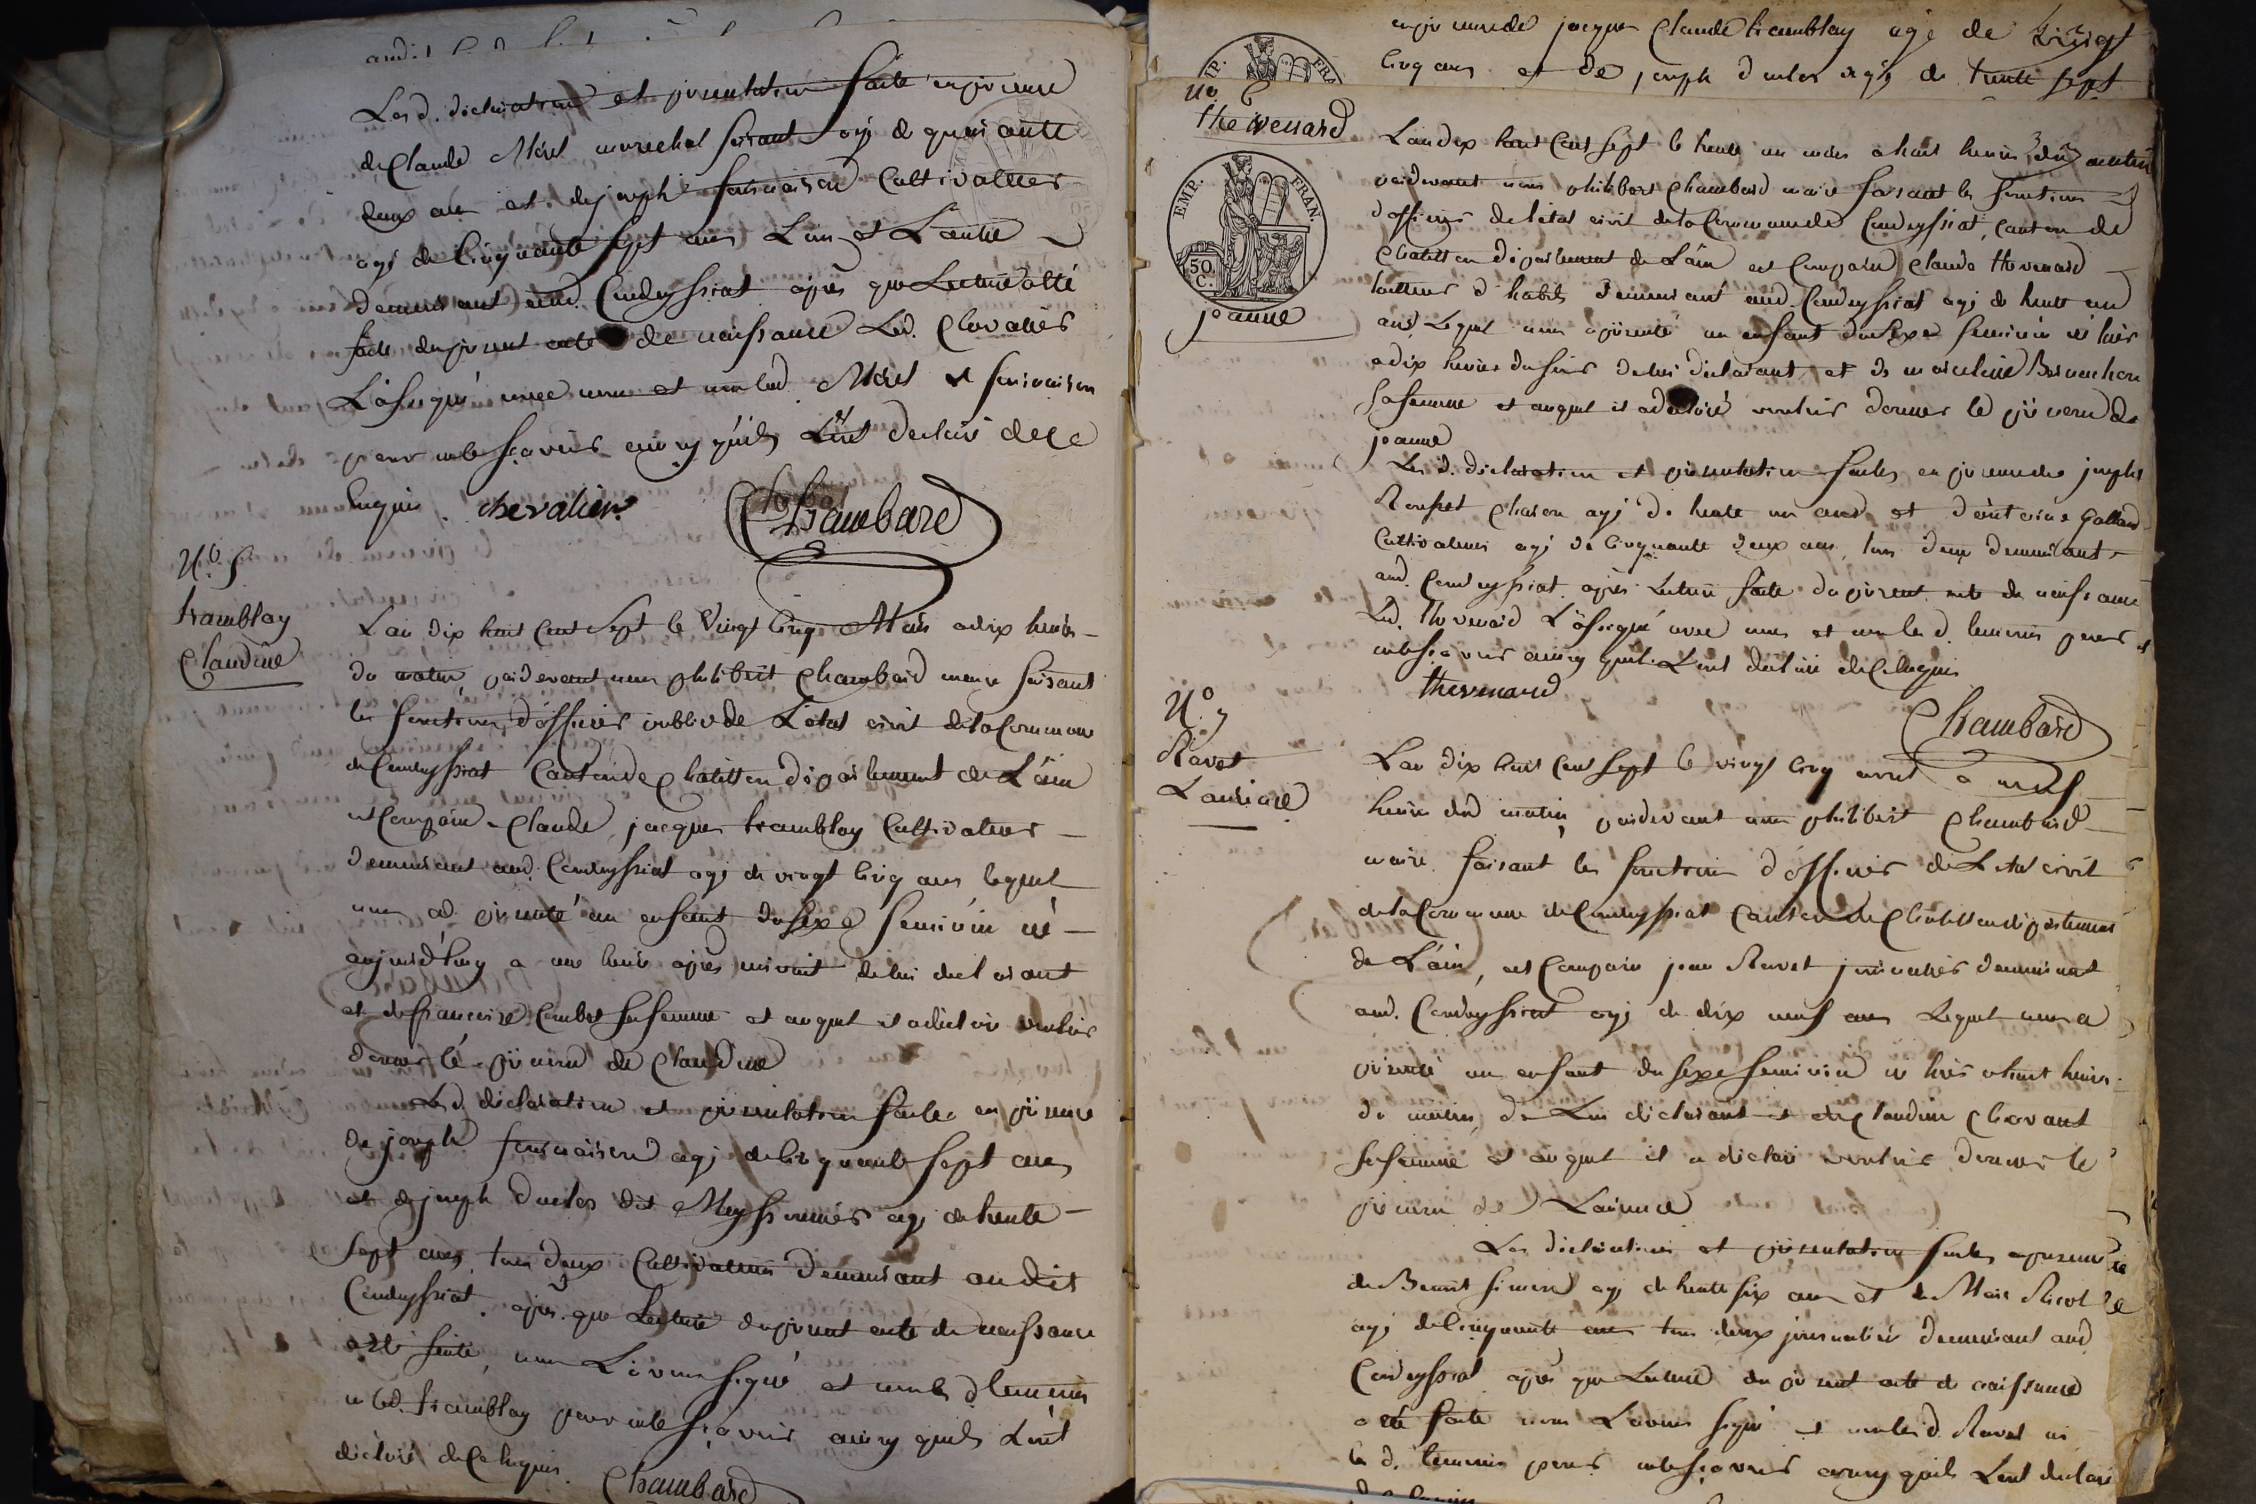 Les d. declaration et presentation faite en presence
de Claude Morel marechal ferrant agé de quarante
deux ans et de joseph fournaison Cultivateur
agé de Cinquante sept ans L'un et L'autre
demeurant aud. Condeyssiat après que Lecture a été
faite du present acte de naissance Led. Chevalier
L'a signé avec nous et non led. Morel et fournaison
pour ne le sçavoir ainsy qu'ils L'ont declaré de ce
Enquis. chevalier Chambard
N.o 5
tramblay
Claudine
L'an dix huit Cent Sept le Vingt Cinq Mars a dix heures
du matin, pardevant nous philibert Chambard maire faisant
les fonctions d'officier public de L'etat civil de la Commune
de Condeyssiat Canton de Chatillon departement de L'ain
est Comparu Claude jacques tramblay Cultivateur
demeurant aud. Condeyssiat agé de vingt Cinq ans lequel
nous a presenté un enfant du sexe feminin né
aujourd'huy a une heure après minuit de lui declarant
et de francoise Combet sa femme et auquel il a declaré vouloir
donner lé prenom de Claudine
Les d. declaration et presentation faites en presence
de joseph fournaison agé de Cinquante sept ans
et de joseph duclos dit Meyssonnier agé de trente
sept ans, tous deux Cultivateurs demeurant audit
Condeyssiat. après que Lecture du present acte de naissance
a eté faite, nous L'avons signé et non les d. temoins
ni led. tramblay pour ne le sçavoir ainsy qu'ils L'ont
declaré de Ce Enquis. Chambard
en presence de jacques Claude tramblay agé de vingt
Cinq ans et de joseph duclos agé de trente sept
N.o 6
thevenard
EMP. FRAN.
50 C.
joanne
L'an dix huit Cent Sept le trente un mars a huit heures du matin
pardevant nous philibert Chambard maire faisant les fonctions
d'officier de l'etat civil de la Commune de Condeyssiat, Canton de
Chatillon departement de L'ain est Comparu Claude thevenard
tailleur d'habits demeurant aud. Condeyssiat agé de trente un
ans Lequel nous a presenté un enfant du sexe feminin né hier
a dix heures du soir de lui declarant et de
sa femme et auquel il a declaré vouloir donner le prenom de
joanne
Les d. declaration et presentation faites en presence de joseph
agé de trente un ans et d'antoine Galland
Cultivateur agé de Cinquante deux ans, tous deux demeurant
aud. Condeyssiat. après Lecture faite du present acte de naissance
Led. thevenard L'a signé avec nous et non les d. temoins pour
ne le sçavoir ainsy qu'ils L'ont declaré de Ce Enquis
thevenard
Chambard
N.o 7
Ravet
Laurence
L'an dix huit Cent Sept le vingt Cinq avril a neuf
heures du matin, pardevant nous philibert Chambard
maire faisant les fonctions d'officier de L'etat civil
de la Commune de Condeyssiat Canton de Chatillon departement
de L'ain, est Comparu jean Ravet journalier demeurant
aud. Condeyssiat agé de dix neuf ans Lequel nous a
presenté un enfant du sexe feminin né hier a huit heures
du matin, de Lui declarant et de Claudine Chavant
sa femme et auquel il a declaré vouloir donner le
prenom de Laurence
Les declaration et presentation faites en presence
de Benoit agé de trente six ans et de
agé de Cinquante ans tous deux journaliers demeurant aud.
Condeyssiat après que Lecture du present acte de naissance
a eté faite nous L'avons signé et non led. Ravet ni
les d. temoins pour ne le sçavoir ainsy qu'ils L'ont declaré